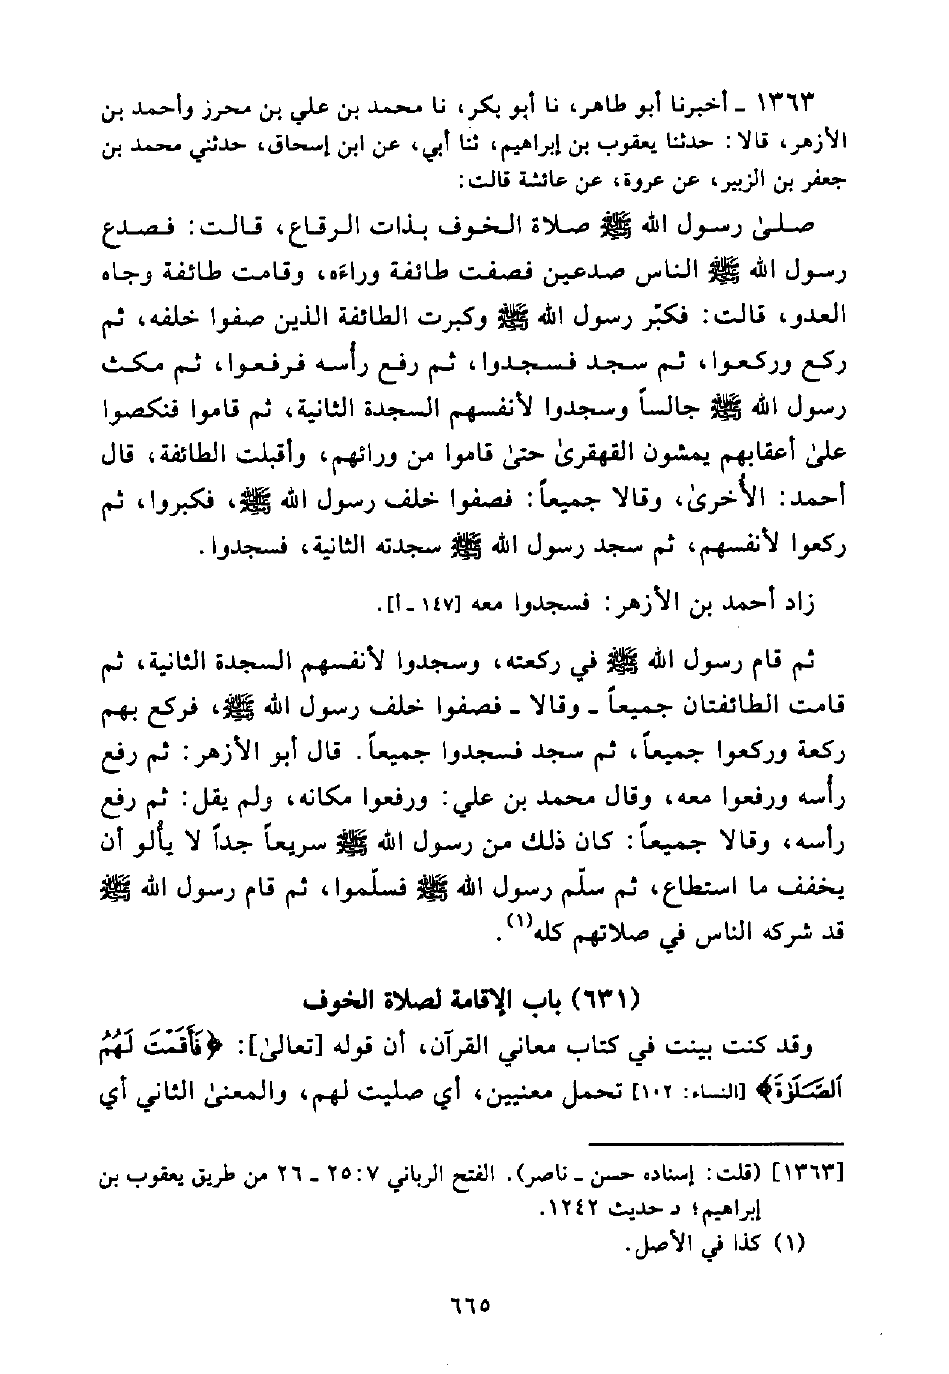 ١٣٦٣ - أخبرنا أبو طاهر، نا أبو بكر، نا محمد بن علي بن محرز وأحمد بن
الأزهر، قالا: حدثنا يعقوب بن إبراهيم، ثنا أبي، عن ابن إسحاق، حدثني محمد بن
جعفر بن الزبير، عن عروة، عن عائشة قالت:
صلىٰ رسول الله ﷺ صلاة الخوف بذات الرقاع، قالت: فصدع
رسول الله ﷺ الناس صدعين فصفت طائفة وراءه، وقامت طائفة وجاه
العدو، قالت: فكبّر رسول الله ﷺ وكبرت الطائفة الذين صفوا خلفه، ثم
ركع وركعوا، ثم سجد فسجدوا، ثم رفع رأسه فرفعوا، ثم مكث
رسول الله ﷺ جالساً وسجدوا لأنفسهم السجدة الثانية، ثم قاموا فنكصوا
علىٰ أعقابهم يمشون القهقرىٰ حتىٰ قاموا من ورائهم، وأقبلت الطائفة، قال
أحمد: الأخرىٰ، وقالا جميعاً: فصفوا خلف رسول الله ﷺ، فكبروا، ثم
ركعوا لأنفسهم، ثم سجد رسول الله ﷺ سجدته الثانية، فسجدوا.
زاد أحمد بن الأزهر: فسجدوا معه [١٤٧ - أ].
ثم قام رسول الله ﷺ في ركعته، وسجدوا لأنفسهم السجدة الثانية، ثم
قامت الطائفتان جميعاً - وقالا - فصفوا خلف رسول الله ﷺ، فركع بهم
ركعة وركعوا جميعاً، ثم سجد فسجدوا جميعاً. قال أبو الأزهر: ثم رفع
رأسه ورفعوا معه، وقال محمد بن علي: ورفعوا مكانه، ولم يقل: ثم رفع
رأسه، وقالا جميعاً: كان ذلك من رسول الله ﷺ سريعاً جداً لا يألو أن
يخفف ما استطاع، ثم سلّم رسول الله ﷺ فسلّموا، ثم قام رسول الله ﷺ
قد شركه الناس في صلاتهم كله(١).
(٦٣١) باب الإقامة لصلاة الخوف
وقد كنت بينت في كتاب معاني القرآن، أن قوله [تعالىٰ]: ﴿فَأَقَمْتَ لَهُمُ
ٱلصَّلَوٰةَ﴾ [النساء: ١٠٢] تحمل معنيين، أي صليت لهم، والمعنىٰ الثاني أي
[١٣٦٣] (قلت: إسناده حسن - ناصر). الفتح الرباني ٢٥:٧ - ٢٦ من طريق يعقوب بن
إبراهيم؛ د حديث ١٢٤٢.
(١) كذا في الأصل.
٦٦٥